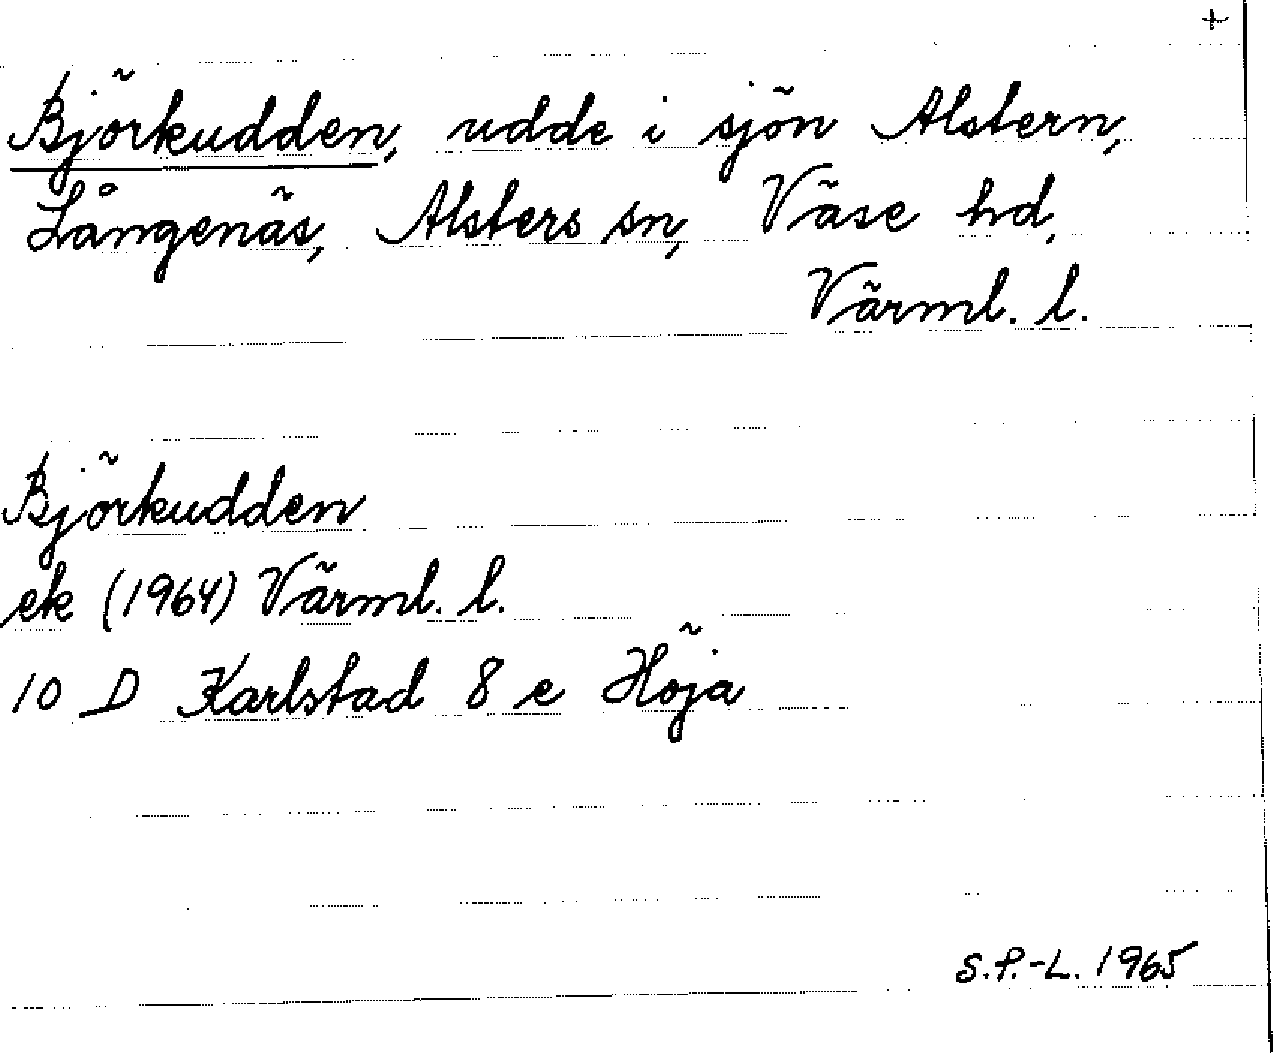 +
Björkudden, udde i sjön Alstern,
Långenäs, Alsters sn, Väse hd,
Värml. l.
Björkudden
ek (1964) Värml. l.
10 D Karlstad 8 e Höja
S.P.-L. 1965